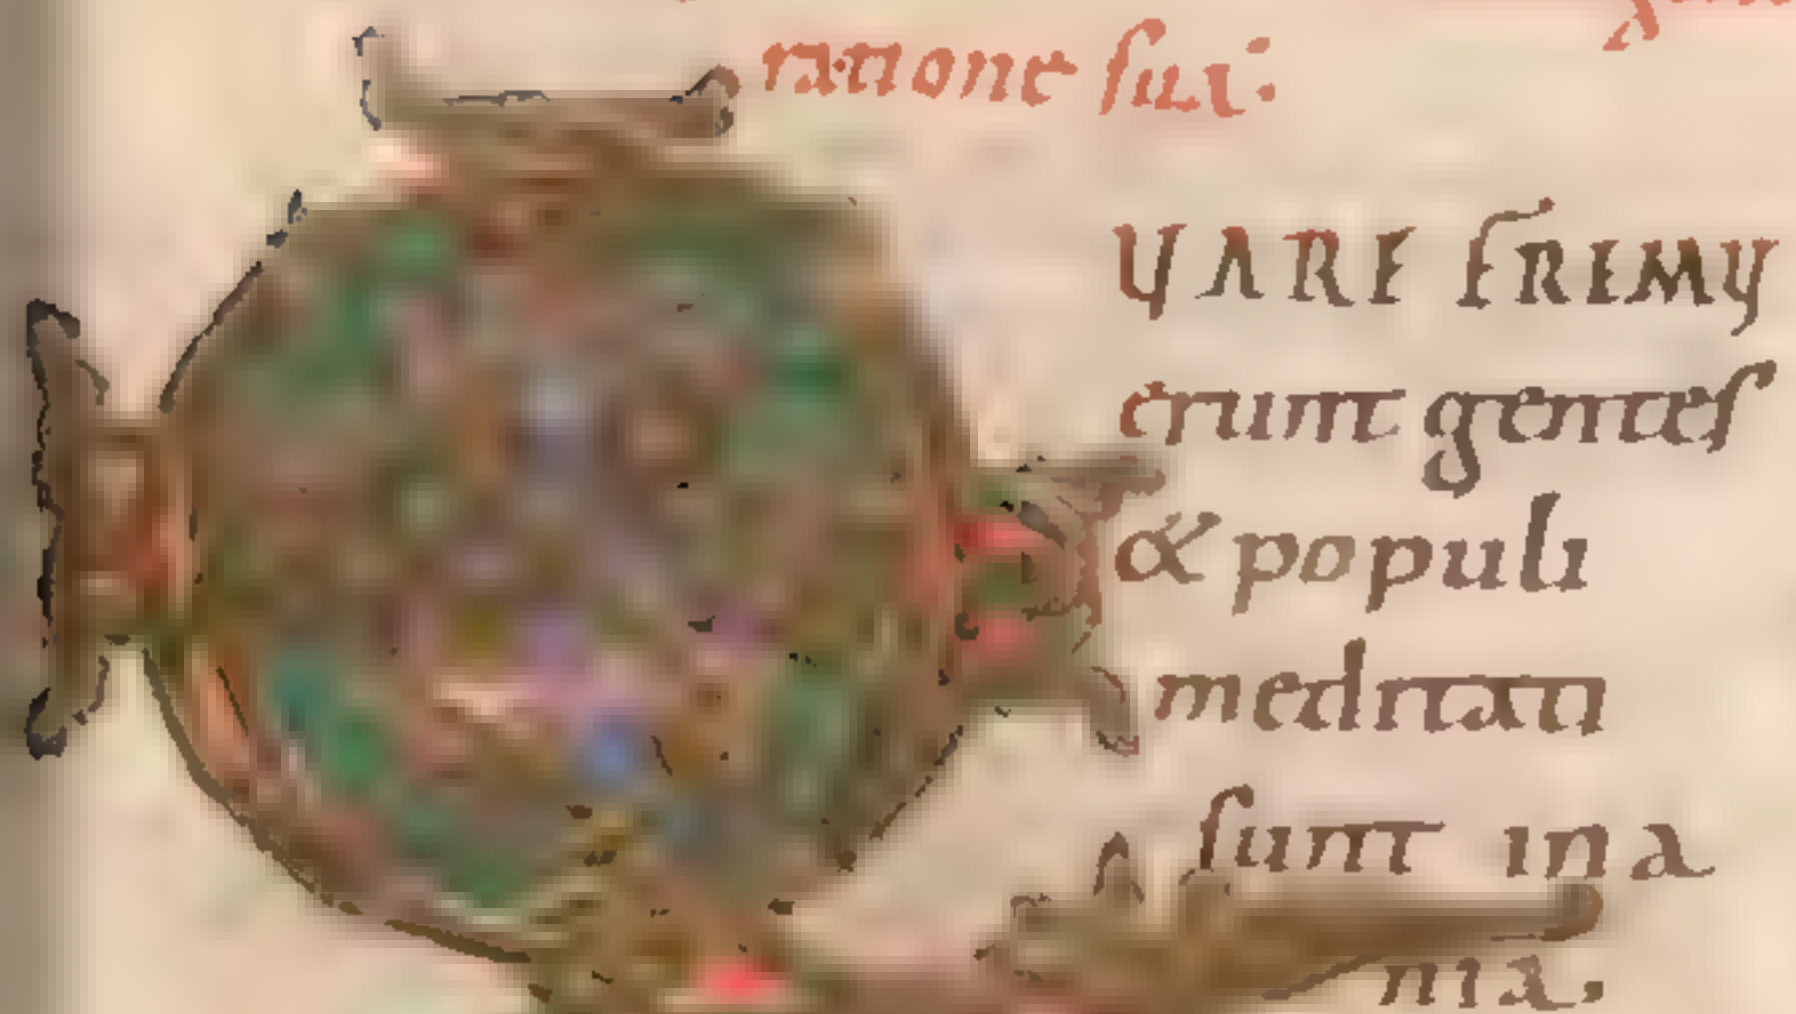 ratione sui:
QUARE FREMU
erunt gentes
& populi
meditati
sunt ina
nia.